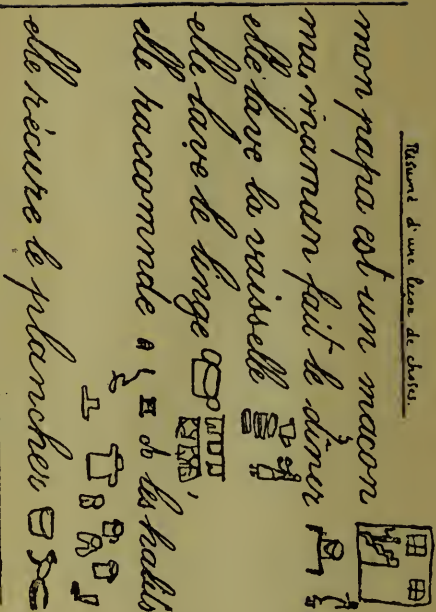 Résumé d'une leçon de choses.
mon papa est un macon
ma maman fait le dîner
elle lave la vaisselle
elle lave le linge
elle raccomnde les habits
elle récure le plancher